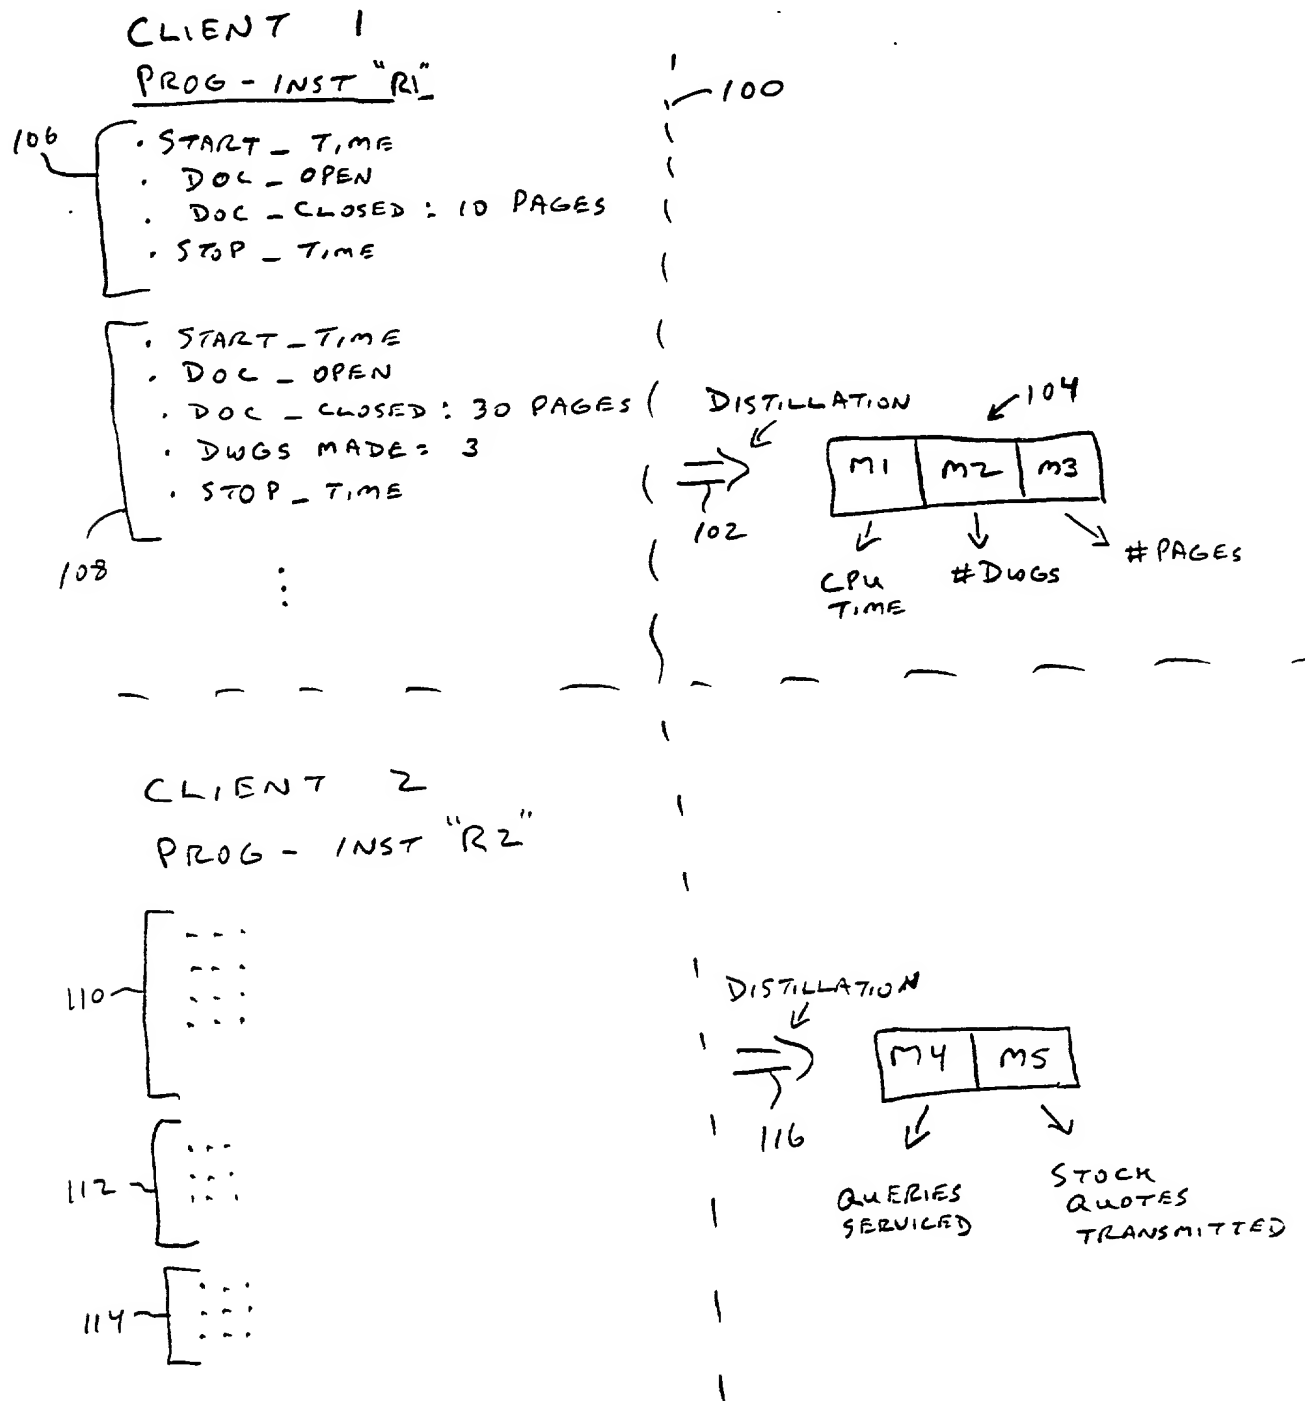 CLIENT 1
PROG - INST "R1"
100
106
. START_TIME
. DOC_OPEN
. DOC_CLOSED: 10 PAGES
. STOP_TIME
. START_TIME
. DOC_OPEN
. DOC_CLOSED: 30 PAGES
. DWGS MADE= 3
. STOP_TIME
108
DISTILLATION
104
M1 M2 M3
102
CPU
TIME
#DWGS
#PAGES
CLIENT 2
PROG - INST "R2"
110
112
114
DISTILLATION
M4 M5
116
QUERIES
SERVICED
STOCK
QUOTES
TRANSMITTED